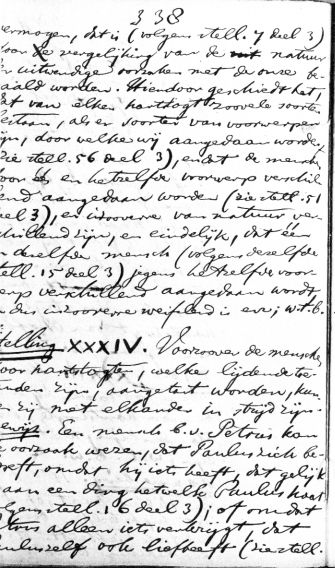 338
vermogen, dat is (volgens stell. 7 deel 3)
door de vergelijking van de natuur
der uitwendige oorzaken met de onze be-
paald worden. Hierdoor geschiedt het,
dat van elken hartstogt zoovele soorten
bestaan, als er soorten van voorwerpen
zijn, door welke wij aangedaan worden,
(zie stell. 56 deel 3), en dat de mensch
door een en hetzelfde voorwerp verschil-
lend aangedaan worden (zie stell. 51
deel 3), en in zooverre van natuur ver-
schillend zijn, en eindelijk, dat één
en dezelfde mensch (volgens dezelfde
stell. 15 deel 3) jegens hetzelfde voor-
werp verschillend aangedaan wordt
en dus in zooverre weifelend is enz; w.t.b.
Stelling XXXIV. Voorzoover de menschen
door hartstogten, welke lijdende toe-
standen zijn, aangetast worden, kun-
nen zij met elkander in strijd zijn.
Bewijs. Een mensch b.v. Petrus kan
de oorzaak wezen, dat Paulus zich be-
droeft, omdat hij iets heeft, dat gelijk
is aan een ding hetwelk Paulus haat
(volgens stell. 16 deel 3); of omdat
Petrus alleen iets verkrijgt, dat
Paulus zelf ook liefheeft (zie stell.